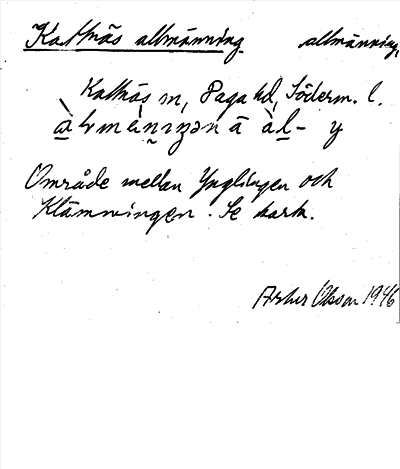 Kattnäs allmänning allmänning,
Kattnäs sn, Daga hd, Söderm. l.
Område mellan Ynglingen och
Klämningen. Se kartn.
Olsson 1946